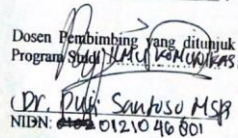 Dosen Pembimbing yang ditunjuk
Program Studi ILMU KOMUNIKASI
Dr. Puji Santoso MSP
NIDN: 0121046801